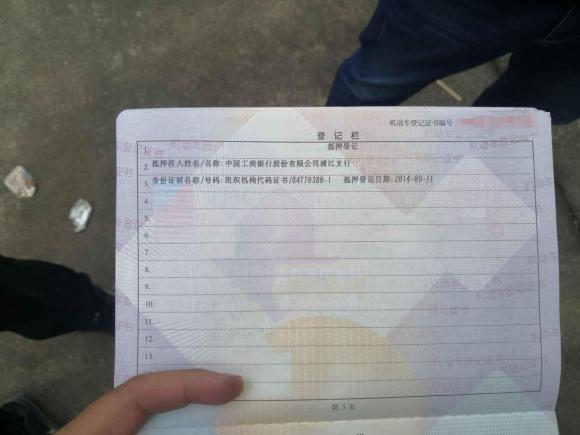 机动车登记证书编号
登 记 栏
1. 抵押登记
2. 抵押权人姓名/名称: 中国工商银行股份有限公司浦江支行
3. 身份证明名称/号码: 组织机构代码证书/84770380-1 抵押登记日期: 2014-09-11
4.
5.
6.
7.
8.
9.
10.
11.
12.
13.
第 3 页